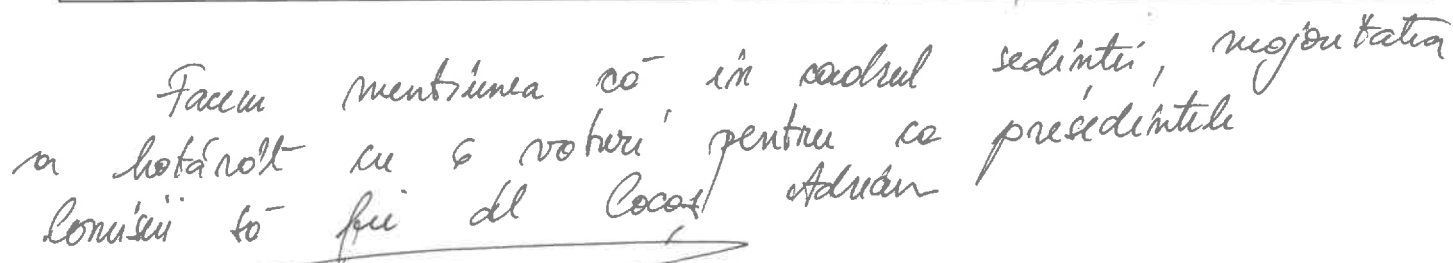 Facem mentiunea că în cadrul sedintei, majoritatea
a hotărât cu 6 voturi pentru ca președintele
Comisiei să fie dl Cocoș Adrian